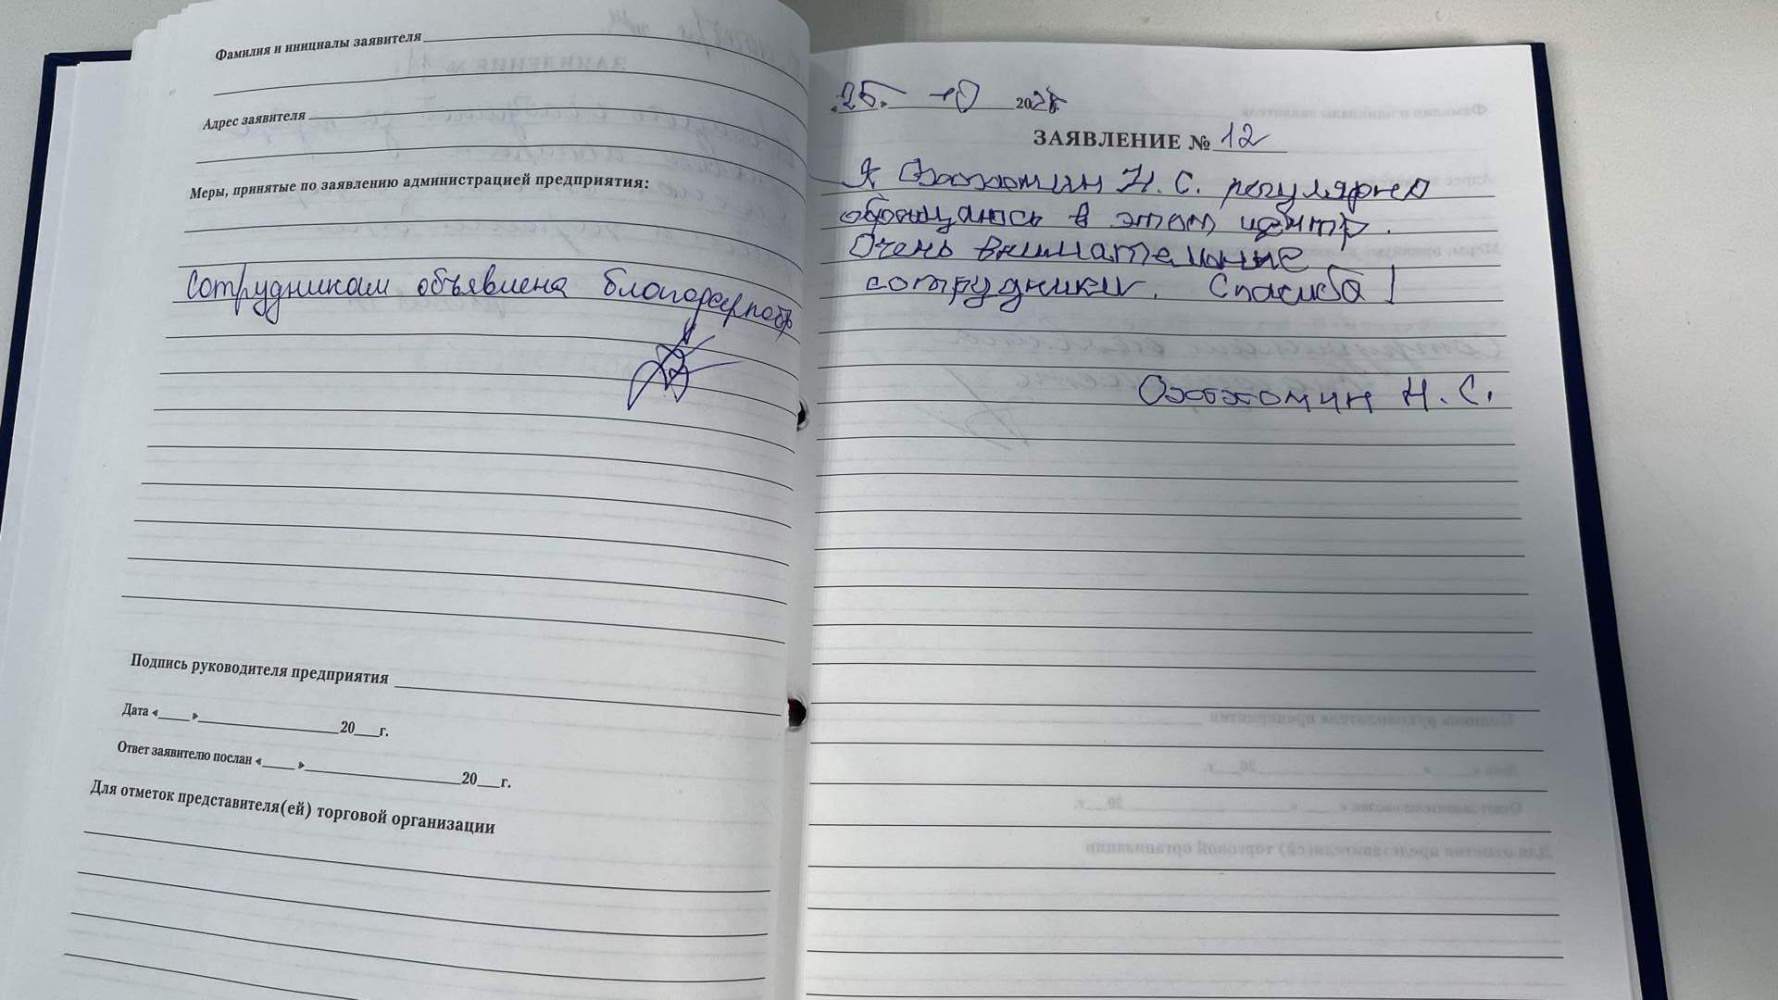 Фамилия и инициалы заявителя
Адрес заявителя
Меры, принятые по заявлению администрацией предприятия:
Сотрудникам объявлена благодарность
Подпись руководителя предприятия
Дата «____ »____________________20___г.
Ответ заявителю послан «____ »____________________20___г.
Для отметок представителя(ей) торговой организации
25. 10 202
ЗАЯВЛЕНИЕ № 12
Я Н. С. регулярно
обращаюсь в этот центр.
Очень внимательные
сотрудники. Спасиба!
Н. С.